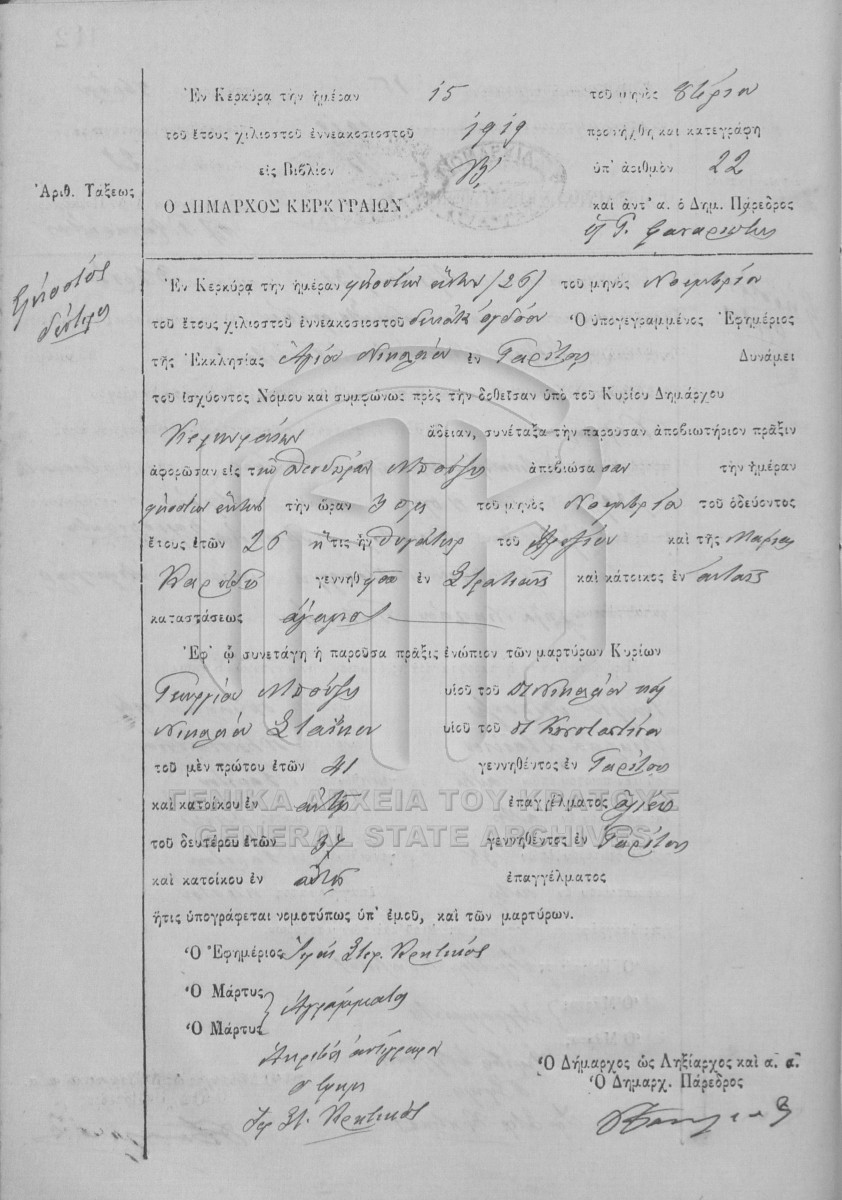 Ἐν Κερκύρᾳ τὴν ἡμέραν 15 τοῦ μηνὸς
τοῦ ἔτους χιλιοστοῦ ἐννεακοσιοστοῦ 1919 προσήχθη καὶ κατεγράφη
εἰς Βιβλίον Β' ὑπ' ἀριθμὸν 22
Ἀριθ. Τάξεως
Ὁ ΔΗΜΑΡΧΟΣ ΚΕΡΚΥΡΑΙΩΝ καὶ ἀντ' α. ὁ Δημ. Πάρεδρος
Ἐν Κερκύρᾳ τὴν ἡμέραν εἰκοστὴν ἕκτην /26/ τοῦ μηνὸς Νοεμβρίου
τοῦ ἔτους χιλιοστοῦ ἐννεακοσιοστοῦ δεκάτου ὀγδόου Ὁ ὑπογεγραμμένος Ἐφημέριος
τῆς Ἐκκλησίας Ἁγίου Νικολάου ἐν Γαρίτσῃ Δυνάμει
τοῦ ἰσχύοντος Νόμου καὶ συμφώνως πρὸς τὴν δοθεῖσαν ὑπὸ τοῦ Κυρίου Δημάρχου
Κερκυραίων ἄδειαν, συνέταξα τὴν παροῦσαν ἀποβιωτήριον πρᾶξιν
ἀφορῶσαν εἰς τὴν Θεοδώραν Μπούζη ἀποβιώσασαν τὴν ἡμέραν
εἰκοστὴν ἕκτην τὴν ὥραν 3 τοῦ μηνὸς Νοεμβρίου τοῦ ὁδεύοντος
ἔτους ἐτῶν 26 ἥτις ἦν θυγάτηρ τοῦ καὶ τῆς Μαρίας
γεννηθ ἐν καὶ κάτοικος ἐν
καταστάσεως ἄγαμος
Ἐφ' ᾧ συνετάγη ἡ παροῦσα πρᾶξις ἐνώπιον τῶν μαρτύρων Κυρίων
Γεωργίου Μπούζη υἱοῦ τοῦ Νικολάου καὶ
Νικολάου Σταΐκου υἱοῦ τοῦ Κωνσταντίνου
τοῦ μὲν πρώτου ἐτῶν 41 γεννηθέντος ἐν Γαρίτσῃ
καὶ κατοίκου ἐν αὐτῇ ἐπαγγέλματος ἁλιέως
ΓΕΝΙΚΑ ΑΡΧΕΙΑ ΤΟΥ ΚΡΑΤΟΥΣ
GENERAL STATE ARCHIVES
τοῦ δευτέρου ἐτῶν 37 γεννηθέντος ἐν Γαρίτσῃ
καὶ κατοίκου ἐν αὐτῇ ἐπαγγέλματος
ἥτις ὑπογράφεται νομοτύπως ὑπ' ἐμοῦ, καὶ τῶν μαρτύρων.
Ὁ Ἐφημέριος Κρητικός
Ὁ Μάρτυς
Ἀγράμματοι
Ὁ Μάρτυς
Ἀκριβὲς ἀντίγραφον
Ὁ Δήμαρχος ὡς Ληξίαρχος καὶ α. α.
Ὁ Δημαρχ. Πάρεδρος
Κρητικός